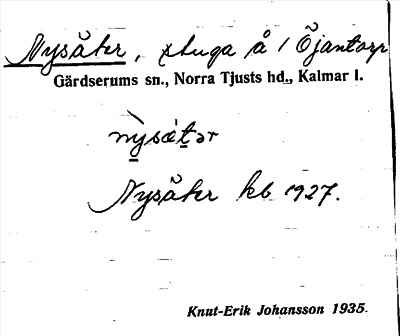 Nysäter, stuga å 1 Öjantorp
Gärdserums sn., Norra Tjusts hd., Kalmar l.
nysätər
Nysäter kb 1927.
Knut-Erik Johansson 1935.